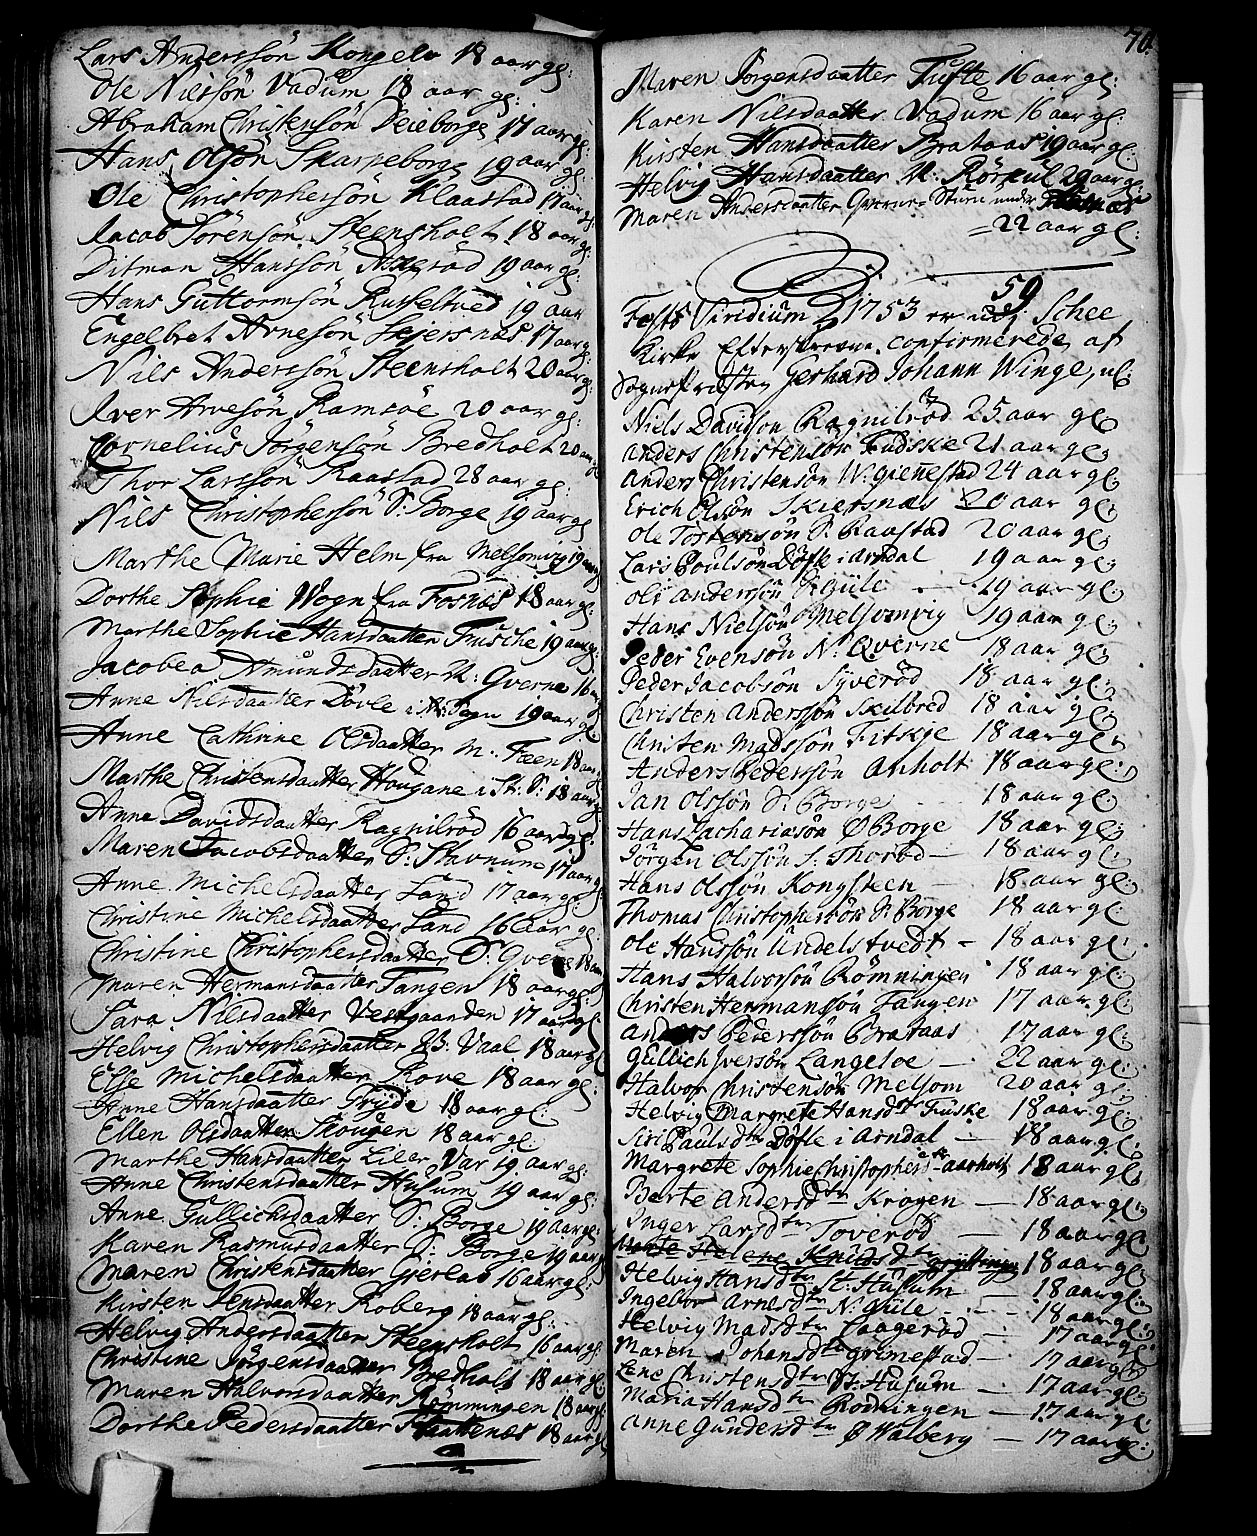 Lars Anderssön Kongelv 18 aar gl:
Ole Nilssön Vadum 18 aar gl:
Abraham Christensön Peieborge 17 aar gl:
Hans Olsön Skarpeborge 19 aar gl:
Ole Christophersön Klaastad 17 aar gl:
Jacob Sörensön Steensholt 18 aar gl:
Ditman Hanssön 19 aar gl:
Hans Guttormsön Russeltved 19 aar
Engelbret Arnesön Skjersnæs 17 aar gl:
Nils Anderssön Steensholt 20 aar gl:
Iver Arvesön Ramsöe 20 aar gl:
Cornelius Jörgensön Bredholt 20 aar gl
Thor Larssön Raastad 28 aar gl:
Nils Christophersön S: Borge 19 aar gl
Marthe Marie Helm fra Melsomvig 19 aar gl
Dorthe Sophie Wogn fra Fosnæs 18 aar gl:
Marthe Sophie Hansdaatter Fusche 19 aar gl:
Jacobea Amundsdaatter N: Gverne 16 aar
Anne Nilsdaatter Dövle i A: Sogn 19 aar gl:
Anne Cathrine Olsdaatter M: Fæen 18 aar gl
Marthe Christensdaatter Hougane i St. S: 18 aar gl
Anne Davidsdaatter Ragnilröd 16 aar gl:
Maren Jacobsdaatter S: Stavnum 17 aar gl
Anne Michelsdaatter Sand 17 aar gl:
Christine Michelsdaatter Sand 16 aar gl
Christine Christophersdaatter S: Gverne 18 aar
Maren Hermansdaatter Tangen 18 aar gl:
Sara Nilsdaatter Vestgaarden 17 aar gl
Helvig Christophersdaatter B. Vaal 18 aar gl
Else Michelsdaatter Skove 18 aar gl:
Anne Hansdaatter Gryde 18 aar gl:
Ellen Olsdaatter Skougen 18 aar gl:
Marthe Hansdaatter Lille Var 19 aar gl:
Anne Christensdaatter Husum 19 aar gl:
Anne Gullichsdaatter S: Borge 19 aar gl:
Karen Rasmusdaatter S: Borge 19 aar gl
Maren Christensdaatter Gjerlas 16 aar gl:
Kirsten Jensdaatter Roberg 18 aar gl:
Helvig Andersdaatter Steensholt 16 aar gl:
Christine Jörgensdaatter Bredholt 18 aar gl
Maren Halvorsdaatter Römmingen 18 aar gl
Dorthe Pedersdaatter Skattenæs 18 aar gl
70.
Maren Jörgensdaatter Tufte 16 aar gl:
Karen Nilsdaatter Vadum 16 aar gl:
Kirsten Hansdaatter Brataas 19 aar gl:
Helvig Hansdaatter N: Rörkul 20 aar gl
Maren Andersdaatter Gverne Stuen under
22 aar gl:
59
Festo Viridium 1753 er udi Schee
Kirke Efterskrevne confirmerede af
Sognepresten Gerhard Johann Winge, nl:
Niels Davidsson Ragnilröd 25 aar gl:
Anders Christensön Fudske 21 aar gl:
Anders Christensön W: Gienestad 24 aar gl:
Erich Olsön Skiersnæs 20 aar gl:
Ole Tostensön S. Raastad 20 aar gl:
Lars Poulsön Döfle i Arndal 19 aar gl:
Ole Andersön Kjiile 19 aar gl:
Hans Nielsön Melsomvig 19 aar gl:
Peder Evensön N: Qverne 18 aar gl:
Peder Jacobsön Syveröd 18 aar gl:
Christen Anderssön Skilbred 18 aar gl:
Christen Madssön Fitskje 18 aar gl:
Anders Pederssön Anholt 18 aar gl:
Jan Olssön S: Borge 18 aar gl:
Hans Zachariasön Ø Borge 18 aar gl:
Jörgen Olssön S: Thoröd 18 aar gl:
Hans Olssön Kongsteen 18 aar gl:
Thomas Christophersön S: Borge 18 aar gl:
Ole Hanssön Undelstvedt 18 aar gl:
Hans Halvorsön Römningen 18 aar gl:
Christen Hermansön Tangen 17 aar gl:
Anders Pederssön Brataas 17 aar gl:
Gullich Iversön Langelöe 22 aar gl:
Halvor Christensön Melsom 20 aar gl:
Helvig Margrete Hansdtr Fuske 18 aar gl:
Siri Paulsdtr Döfle i Arndal 18 aar gl:
Margrete Sophie Christophersdtr Aarholt 18 aar gl:
Berte Andersdtr Krogen 18 aar gl:
Inger Larsdtr Toveröd 18 aar gl:
Helene Knudsdtr Gryttinge 18 aar gl:
Helvig Hansdtr St: Husum 18 aar gl:
Ingebor Arnesdtr N: Kiile 18 aar gl:
Helvig Madsdtr Haageröd 17 aar gl:
Maren Johansdtr Grimestad 17 aar gl:
Lene Christensdtr N: Husum 17 aar gl:
Maria Hansdtr Rödningen 17 aar gl:
Anne Gundersdtr Ø Walberg 17 aar gl: